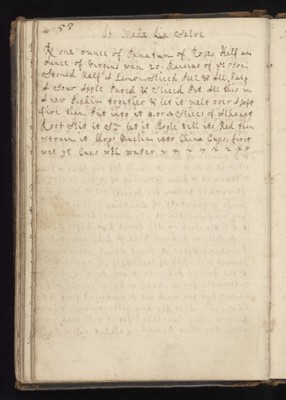 58
To Make Lip Salve
one ounce of Pomatum of Roses Half an
ounce of Virgins wax 20 Raisins of ye
Stoned Half A Lemon Sliced Peel & All, Half
A Sour Apple Pared & Sliced Put All this in
A new Pipkin together & let it melt over A soft
fire then Put into it 4 or 5 Slices of Alkanet
Root Slit it let it Boyle till its Red then
strain it thro' Muslin into China Cups, first
wet ye Cups with water